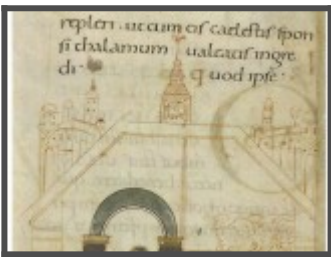 repleri · ut cum eis caelestis spon
si thalamum ualeatis ingre
di · quod ipse ·